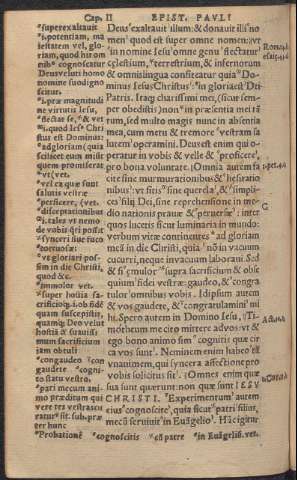 Cap. II EPIST. PAVLI
superexaltauit
i. potentiam, ma
iestatem vel, glo
riam, quod his om
nib' cognoscatur
Deus veluti homo
nomine suo digno
scitur.
i. præ magnitudi
ne virtutis Iesu,
i. quod Iesus Chri
stus est Dominus
ad gloriam (quia
scilicet eum misit
quem promiserat
vt (vet.
vel ea quæ sunt
salutis vestræ
perficere, (vet.
disceptationibus
i. tales vt nemo
de vobis queri possit
synceri siue sucu
tortuosæ
vt gloriari pos-
sim in die Christi,
quod &c.
immolor vet.
super hostia sa-
crificioque ob fidē
quam suscepistis,
quamque Deo velut
hostiā & suauissi
mum sacrificium
iam obtuli
congaudeo con
gaudete cogni-
to statu vestro.
pari mecum ani
mo præditum qui
vere res vestras cu
raturus sit. sub. præ
ter hunc
Probationē cognoscitis cū patre in Euāgelio. vet.
Deus exaltauit illum: & donauit illi no
men quod est super omne nomen: vt
in nomine Iesu omne genu flectatur
cælestium, terrestrium, & infernorum
& omnis lingua confiteatur quia Do-
minus Iesus Christus in gloria est Dei
Patris. Itaq; charissimi mei, (sicut sem-
per obedistis) non in præsentia mei tā
tum, sed multo magis nunc in absentia
mea, cum metu & tremore vestram sa
lutem operamini. Deus est enim qui o-
peratur in vobis & velle & proficere,
pro bona voluntate. (Omnia autem fa
cite sine murmurationibus & hæsitatio
nibus: vt sitis sine querela, & simpli-
ces filij Dei, sine reprehensione in me-
dio nationis prauæ & peruersæ: inter
quos lucetis sicut luminaria in mundo:
verbum vitæ continentes ad gloriam
meā in die Christi, quia nō in vacuum
cucurri, neque in vacuum laboraui. Sed
& si immolor supra sacrificium & obse
quium fidei vestræ: gaudeo, & congra
tulor omnibus vobis. Idipsum autem
& vos gaudete, & congratulamini mi
hi. Spero autem in Domino Iesu, Ti-
motheum me cito mittere ad vos: vt &
ego bono animo sim cognitis quæ cir
ca vos sunt. Neminem enim habeo tā
vnanimem, qui syncera affectione pro
vobis solicitus sit. (Omnes enim quæ
sua sunt quærunt: non quæ sunt IESV
CHRISTI. Experimentum autem
eius cognoscite, quia sicut patri filius,
mecū seruiuit in Euāgelio. Hūc igitur
Roma. 14
esa. 45
1. pet. 4
G
Act. 16